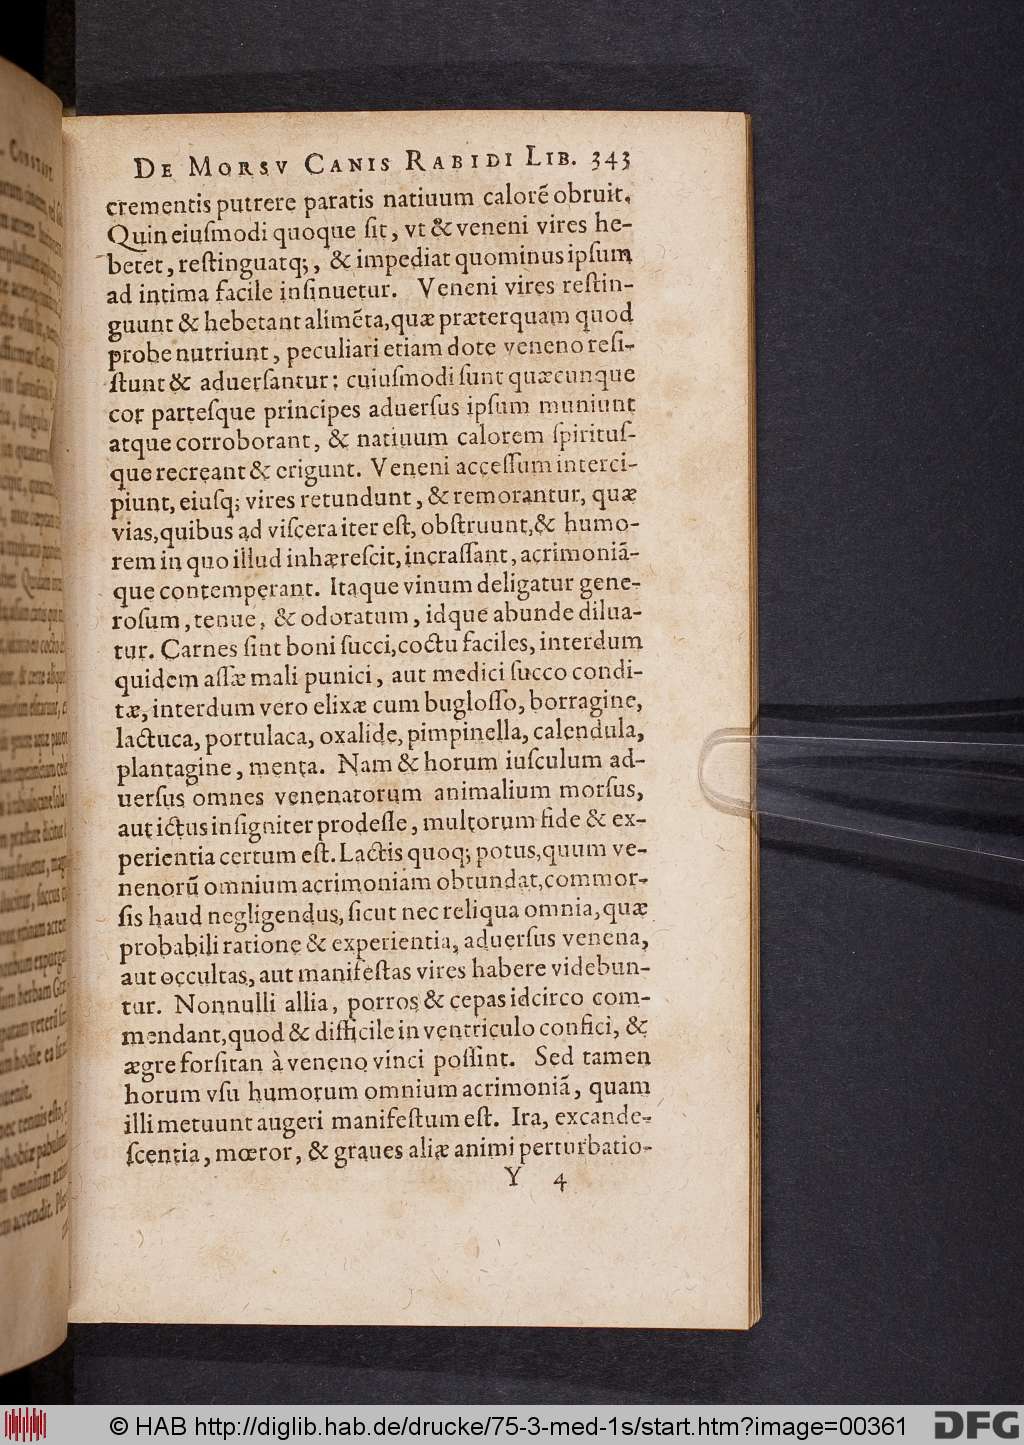 DE MORSV CANIS RABIDI LIB. 343
crementis putrere paratis natiuum calorē obruit.
Quin eiuſmodi quoque ſit, vt & veneni vires he-
betet, reſtinguatq;, & impediat quominus ipſum
ad intima facile inſinuetur. Veneni vires reſtin-
guunt & hebetant alimēta, quæ præterquam quod
probe nutriunt, peculiari etiam dote veneno reſi-
ſtunt & aduerſantur: cuiuſmodi ſunt quæcunque
cor parteſque principes aduerſus ipſum muniunt
atque corroborant, & natiuum calorem ſpirituſ-
que recreant & erigunt. Veneni acceſſum interci-
piunt, eiuſq; vires retundunt, & remorantur, quæ
vias, quibus ad viſcera iter eſt, obſtruunt, & humo-
rem in quo illud inhæreſcit, incraſſant, acrimoniā-
que contemperant. Itaque vinum deligatur gene-
roſum, tenue, & odoratum, idque abunde dilua-
tur. Carnes ſint boni ſucci, coctu faciles, interdum
quidem aſſæ mali punici, aut medici ſucco condi-
tæ, interdum vero elixæ cum bugloſſo, borragine,
lactuca, portulaca, oxalide, pimpinella, calendula,
plantagine, menta. Nam & horum iuſculum ad-
uerſus omnes venenatorum animalium morſus,
aut ictus inſigniter prodeſſe, multorum fide & ex-
perientia certum eſt. Lactis quoq; potus, quum ve-
nenorū omnium acrimoniam obtundat, commor-
ſis haud negligendus, ſicut nec reliqua omnia, quæ
probabili ratione & experientia, aduerſus venena,
aut occultas, aut manifeſtas vires habere videbun-
tur. Nonnulli allia, porros & cepas idcirco com-
mendant, quod & difficile in ventriculo confici, &
ægre forſitan à veneno vinci poſſint. Sed tamen
horum vſu humorum omnium acrimoniā, quam
illi metuunt augeri manifeſtum eſt. Ira, excande-
ſcentia, mœror, & graues aliæ animi perturbatio-
Y 4
© HAB http://diglib.hab.de/drucke/75-3-med-1s/start.htm?image=00361
DFG